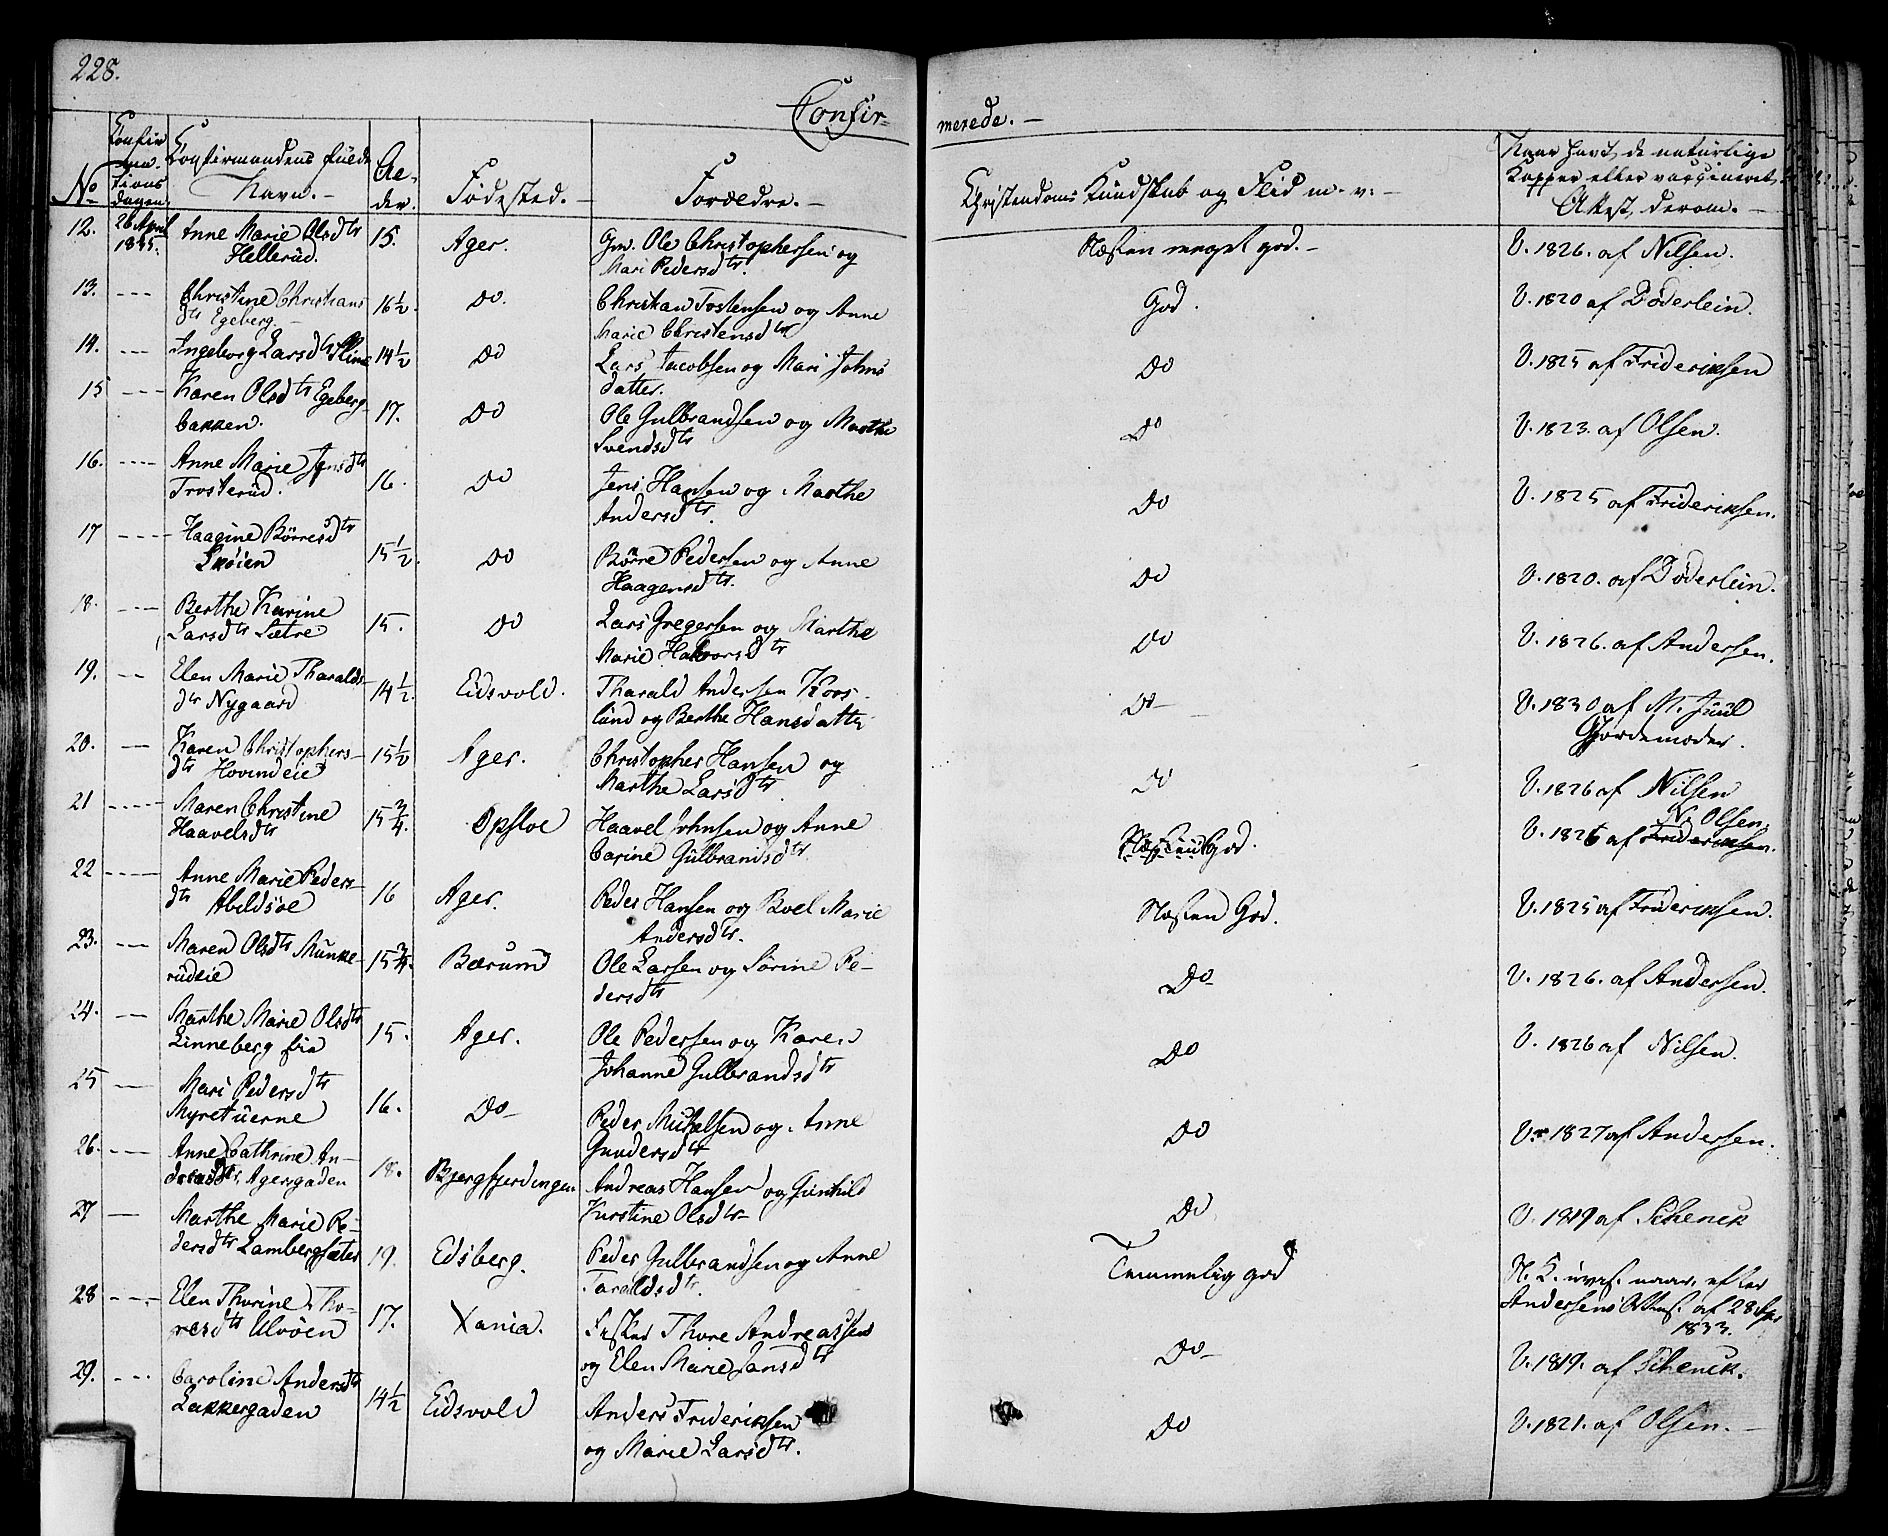 228.
Confir-
merede. –
No
Confir
ma
tions
dagen
Confirmandens fulde
Navn. –
Al-
der.
Fødested. –
Forældre. –
Christendoms Kundskab og Flid m. v. –
Naar havt de naturlige
Kopper eller vaccineret,
Attest derom. –
12. 26 April 1835. Anne Marie Olsdtr 15. Ager. Gm. Ole Christophersen og Næsten meget god. – V. 1826. af Nilsen.
Hellerud. Mari Pedersdtr.
13. --- Christine Christians 16½. Do. Christian Tostensen og Anne God. V. 1820 af Döderlein.
dtr Egeberg. – Marie Christensdtr
14. --- Ingeborg Larsdtr 14½ Do Lars Jacobsen og Mari Johns Do V. 1825 af Frideriksen
datter.
15 --- Karen Olsdtr Egeberg 17. Do Ole Gulbrandsen og Marthe Do V. 1823. af Olsen.
bakken. Svendsdtr
16. ---- Anne Marie Jensdtr 16. Do Jens Hansen og Marthe Do V. 1825 af Frideriksen.
Trosterud. Andersdtr.
17 ---- Haagine Börresdtr 15½. Do Börre Pedersen og Anne Do V. 1820. af Döderlein.
Skøien Haagensdtr.
18. --- Berthe Karine 15. Do Lars Gregersen og Marthe Do V. 1826. af Andersen.
Larsdtr Sætre Marie Halvorsdtr
19. -- Elen Marie Tharalds 14½. Eidsvold. Tharald Andersen Kors- Do – V. 1830 af M. Juul
dtr Nygaard lund og Berthe Hansdatter Gjordemoder.
20. --- Karen Christophers- 15½ Ager. Christopher Hansen og Do V. 1826 af Nilsen
dtr Hovindeie Marthe Larsdtr
21 ----- Maren Christine 15¾. Opsloe Haavel Johnsen og Anne God. V. 1826 af Frideriksen. N. Olsen.
Haavelsdtr Carine Gulbrandsdtr.
22 ---- Anne Marie Peders- 16 Ager. Peder Hansen og Boel Marie Næsten God. V. 1825 af Frideriksen.
dtr Abildsøe Andersdtr.
23. --- Maren Olsdtr Munke- 15¾. Bærum Ole Larsen og Sørine Pe- Do – V. 1826. af Andersen.
rudeie dersdtr
24. --- Marthe Marie Olsdtr 15. Ager. Ole Pedersen og Karen Do V. 1826 af Nilsen.
Linneberg Johanne Gulbrandsdtr
25 --- Mari Pedersdtr 16. Do – Peder Michelsen og Anne Do V. 1827 af Andersen.
Myretuerne Gundersdtr
26. --- Anne Cathrine An- 18. Bjergfjerdingen Andreas Hansen og Gunhild Do V. 1819 af Schenck
dreasdtr Agersgaden Kirstine Olsdtr –
27 --- Marthe Marie Pe- 19. Edsberg. Peder Gulbrandsen og Anne Temmelig god N. K. af
dersdtr Lambergsæter Taraldsdtr. Andersens Attest af 28
1833.
28 ---- Elen Thorine Tho- 17. Xania. Fisker Thore Andreassen Do – V. 1819. af Schenck.
resdtr Ulvøen og Elen Marie Jansdtr
29. --- Caroline Andersdtr 14½ Eidsvold Anders Frideriksen Do V. 1821. af Olsen. –
Lakkergaden og Marie Larsdtr.